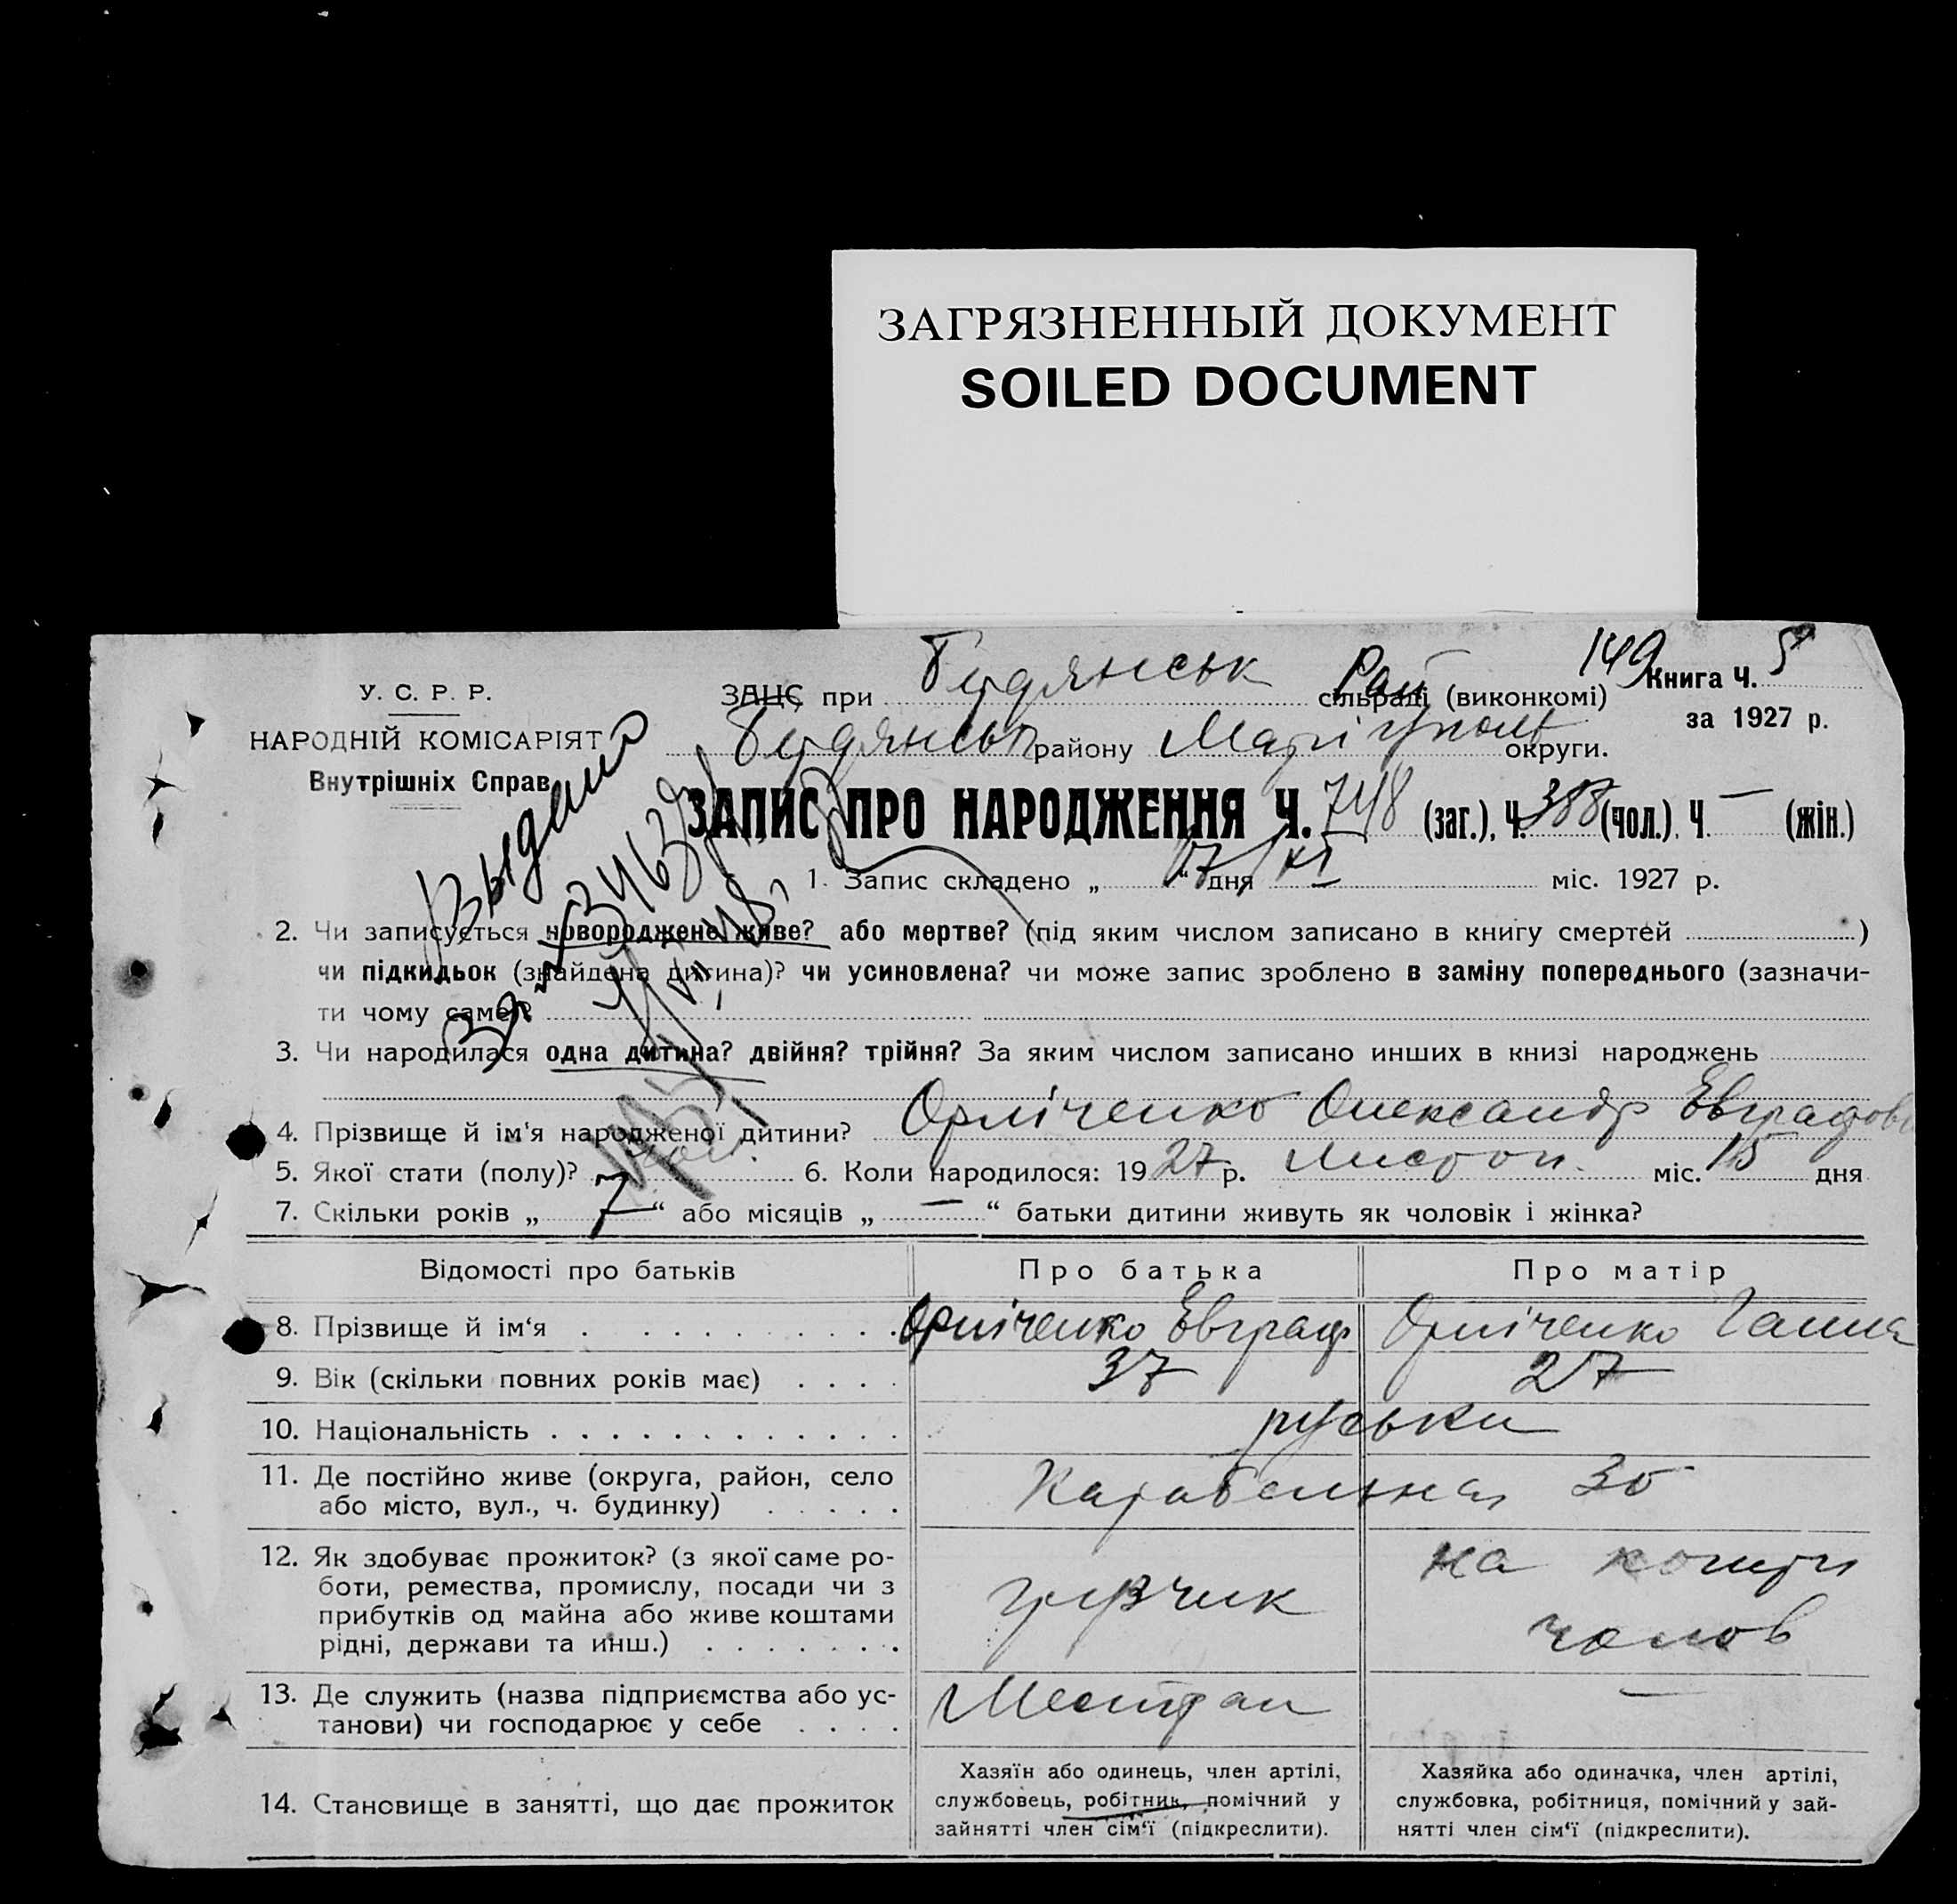 ЗАГРЯЗНЕННЫЙ ДОКУМЕНТ
SOILED DOCUMENT
149
У. С. Р. Р.
НАРОДНІЙ КОМІСАРІЯТ
Внутрішніх Справ
ЗАЦС при сільраді (виконкомі) Рай
району Маріупольс округи.
Книга Ч. 5
за 1927 р.
ЗАПИС ПРО НАРОДЖЕННЯ Ч. 748 (заг.), Ч. 388 (чол.). Ч. — (жін.)
Выдано
1. Запис складено „ 17 “ дня XI міс. 1927 р.
2. Чи записується новороджене живе? або мертве? (під яким числом записано в книгу смертей )
чи підкидьок (знайдена дитина)? чи усиновлена? чи може запис зроблено в заміну попереднього (зазначи-
ти чому саме)?
3. Чи народилася одна дитина? двійня? трійня? За яким числом записано инших в книзі народжень
4. Прізвище й ім'я народженої дитини? Орліченко Олександр Евграфов
5. Якої стати (полу)? чол. 6. Коли народилося: 1927 р. Листоп. міс. 15 дня
7. Скільки років „ 7 “ або місяців „ — “ батьки дитини живуть як чоловік і жінка?
Відомості про батьків Про батька Про матір
8. Прізвище й ім'я Орліченко Евграф Орліченко Ганна
9. Вік (скільки повних років має) 37 27
10. Національність руськи
11. Де постійно живе (округа, район, село
або місто, вул., ч. будинку)
Карабельная 36
12. Як здобуває прожиток? (з якої саме ро-
боти, ремества, промислу, посади чи з
прибутків од майна або живе коштами
рідні, держави та инш.)
грузчик
на кошти
чолов
13. Де служить (назва підприємства або ус-
танови) чи господарює у себе
Местран
—
14. Становище в занятті, що дає прожиток
Хазяїн або одинець, член артілі,
службовець, робітник, помічний у
зайнятті член сім'ї (підкреслити).
Хазяйка або одиначка, член артілі,
службовка, робітниця, помічний у зай-
нятті член сім'ї (підкреслити).